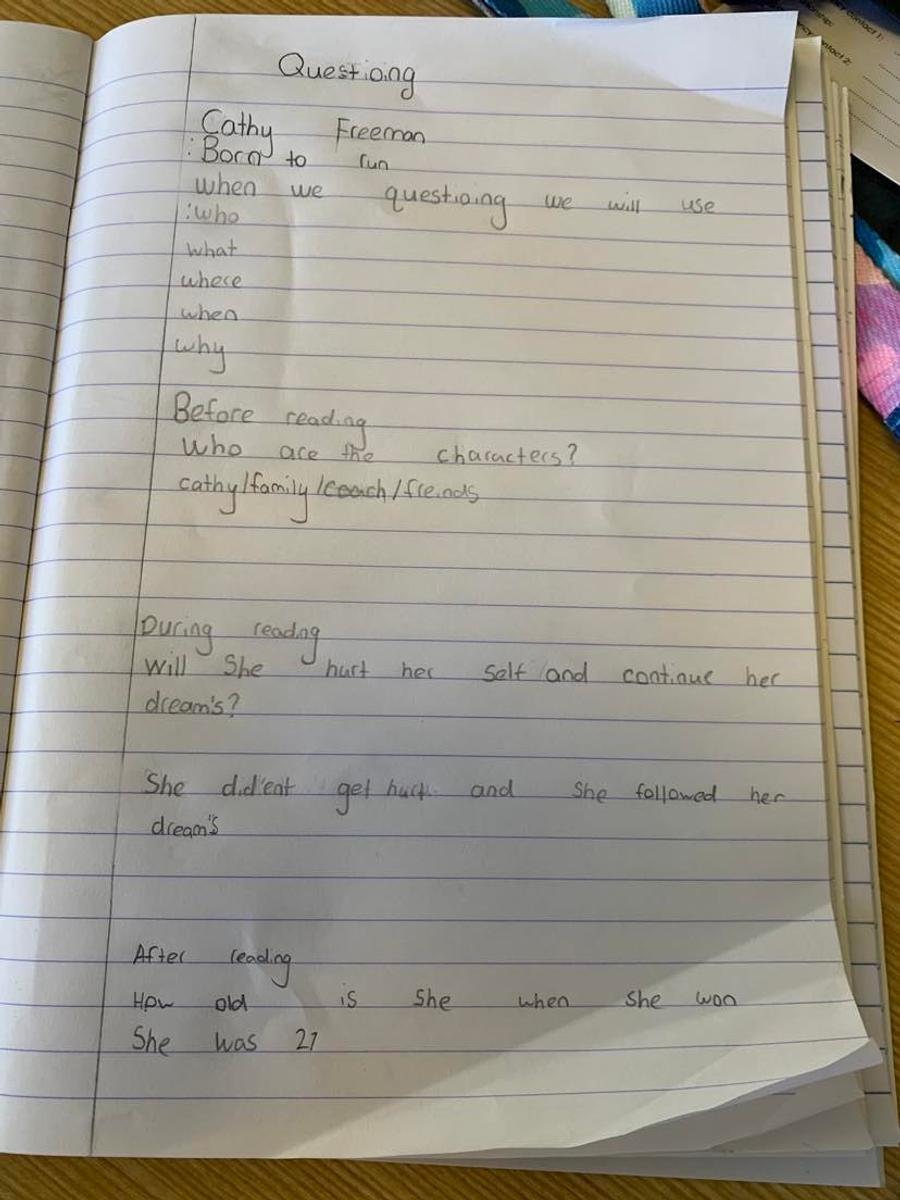 Questioing
Cathy Freeman
: Born to run
when we questioing we will use
: who
what
where
when
why
Before reading
Who are the characters?
cathy/family/coach/freinds
During readng
Will She hurt her self and continue her
dream's?
She did'ent get hurt and She followed her
dream's
After reading
How old is She when She won
She was 27
contact 1:
contact 2: